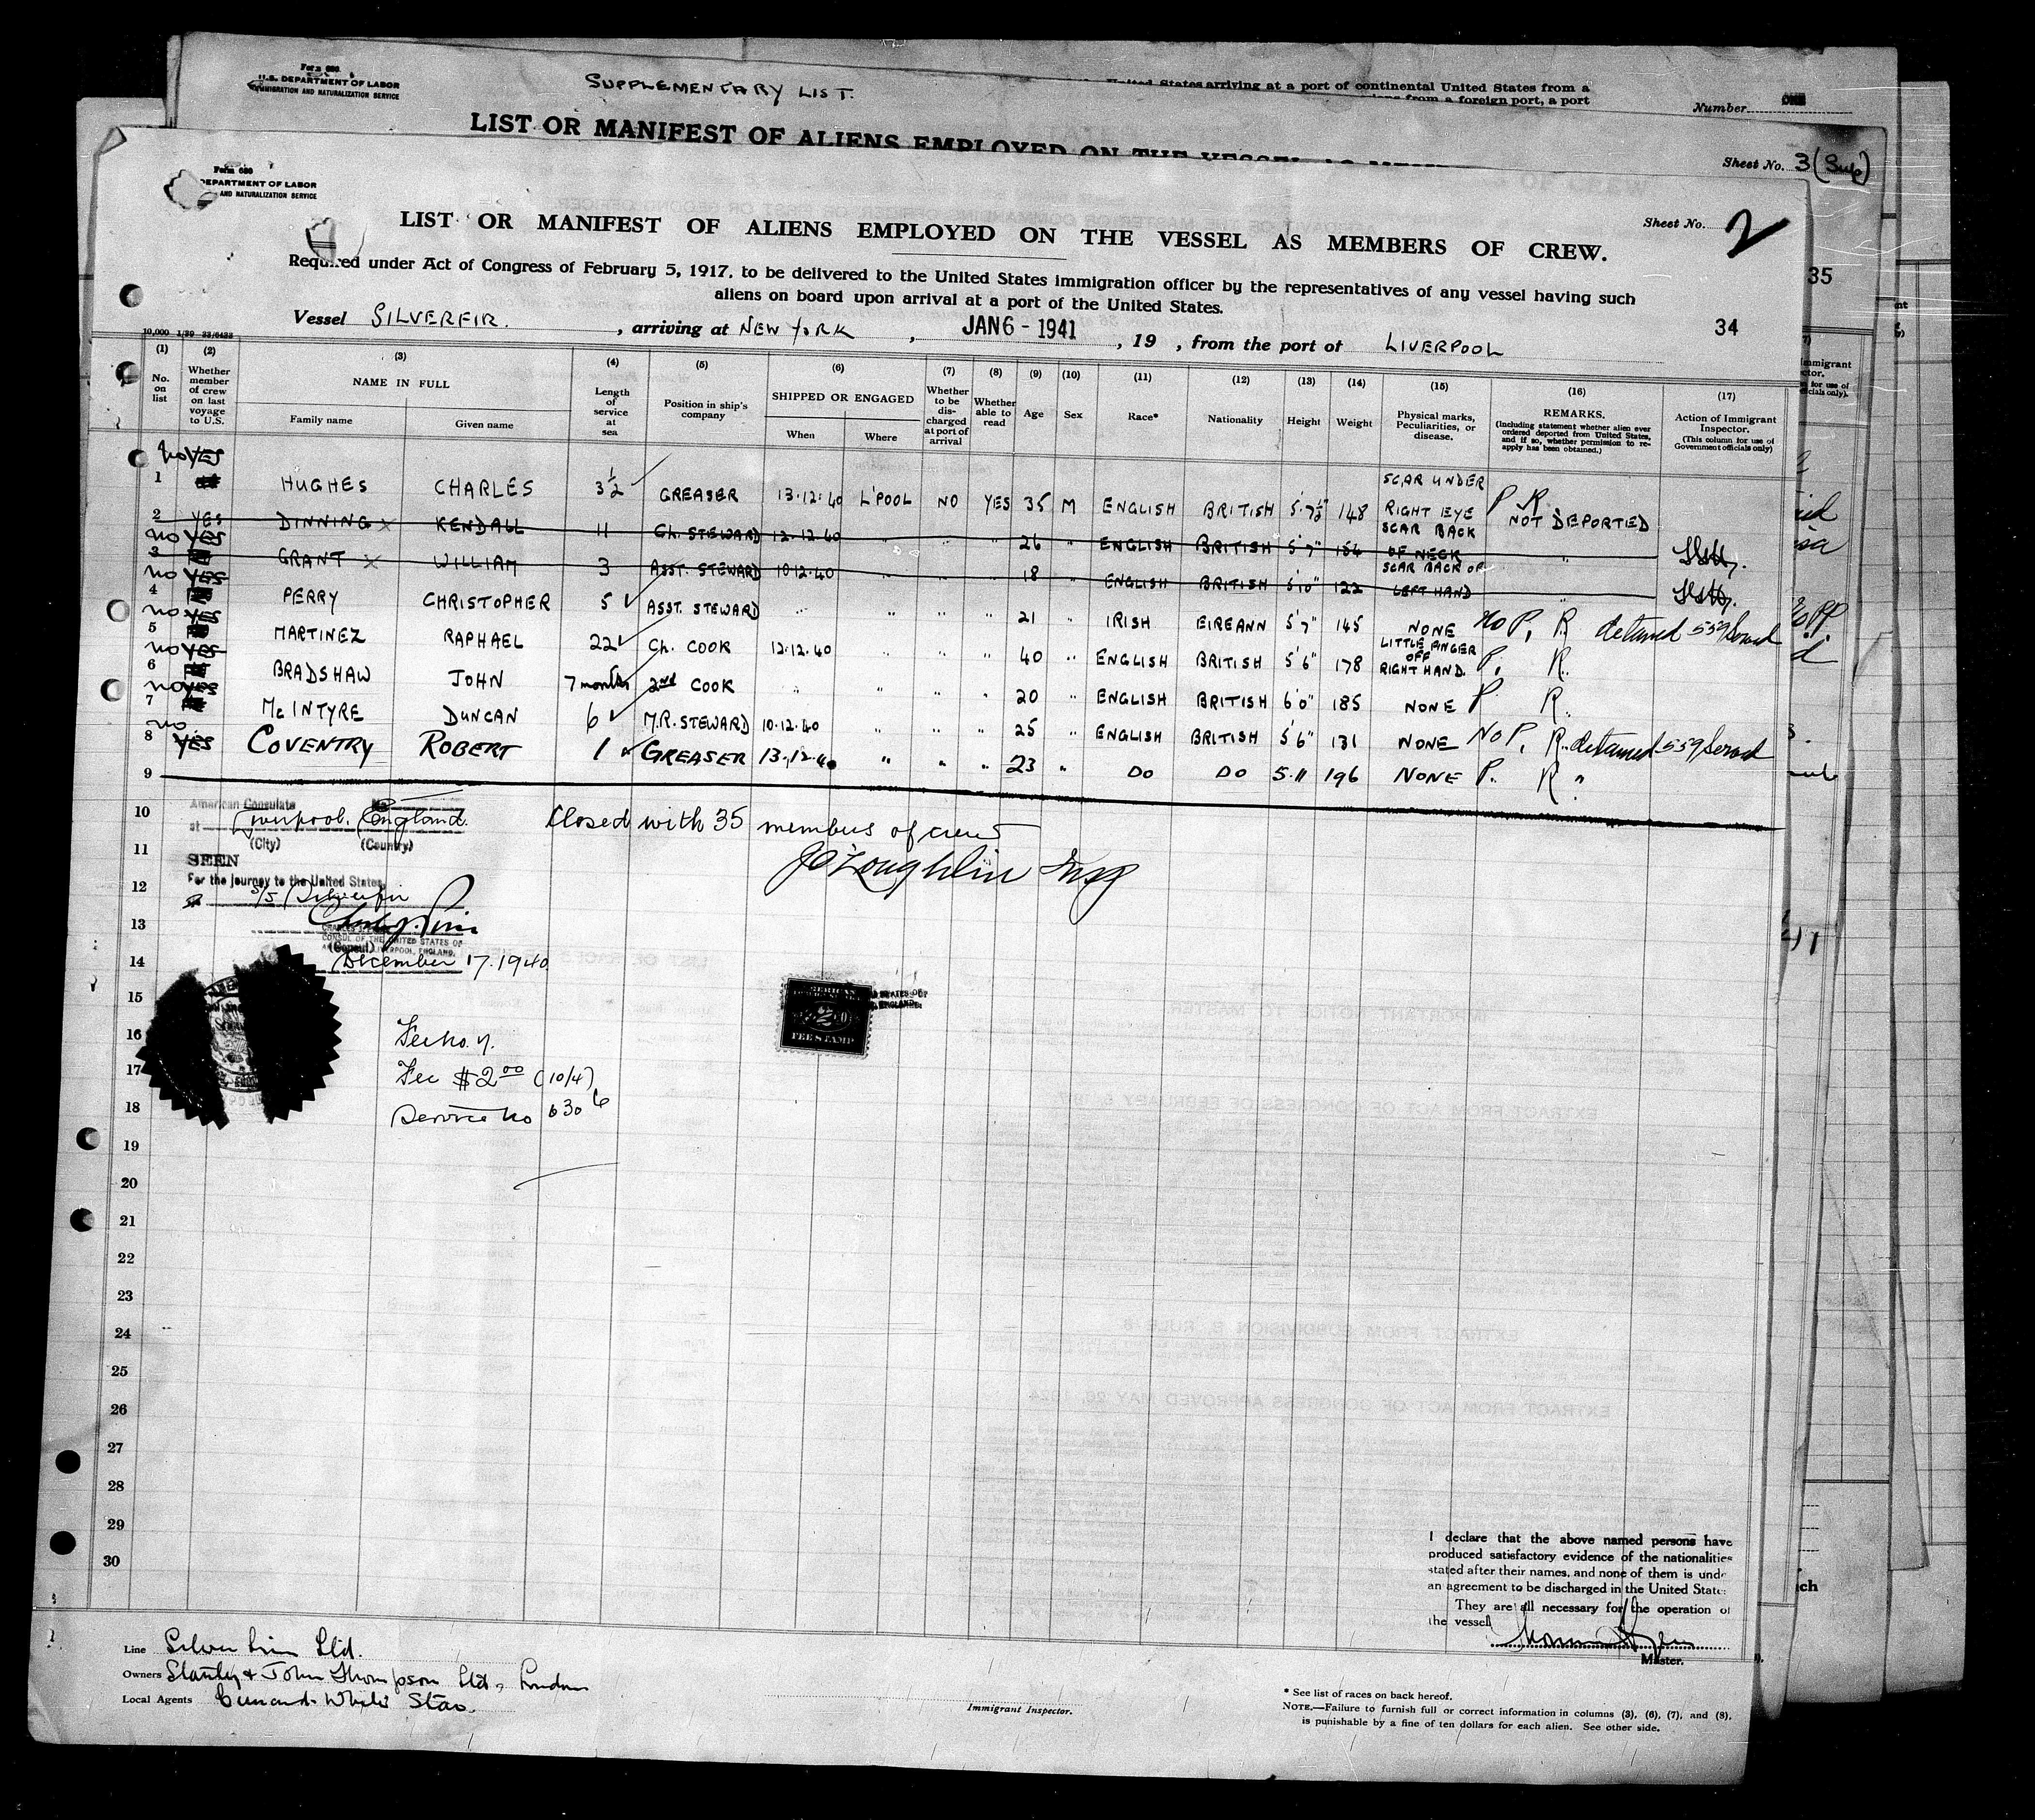 Form 680
U.S. DEPARTMENT OF LABOR
IMMIGRATION AND NATURALIZATION SERVICE
SUPPLEMENTARY LIST.
United States arriving at a port of continental United States from a
from a foreign port, a port
Number
LIST OR MANIFEST OF ALIENS EMPLOYED ON THE VESSEL AS
Sheet No. 3 (Sup)
Form 680
DEPARTMENT OF LABOR
AND NATURALIZATION SERVICE
Sheet No. 2
LIST OR MANIFEST OF ALIENS EMPLOYED ON THE VESSEL AS MEMBERS OF CREW.
Required under Act of Congress of February 5, 1917, to be delivered to the United States immigration officer by the representatives of any vessel having such
aliens on board upon arrival at a port of the United States.
35
Vessel SILVERFIR. , arriving at NEW YORK , JAN 6 - 1941 , 19 , from the port of LIVERPOOL
34
10,000 1/39 33/6433
(1) (2) (3) (4) (5) (6) (7) (8) (9) (10) (11) (12) (13) (14) (15) (16) (17)
No. on list
Whether member of crew on last voyage to U.S.
NAME IN FULL
Family name
Given name
Length of service at sea
Position in ship's company
SHIPPED OR ENGAGED
When
Where
Whether to be discharged at port of arrival
Whether able to read
Age
Sex
Race*
Nationality
Height
Weight
Physical marks, Peculiarities, or disease.
REMARKS.
(Including statement whether alien ever ordered deported from United States, and if so, whether permission to re-apply has been obtained.)
Action of Immigrant Inspector.
(This column for use of Government officials only)
1 no YES HUGHES CHARLES 3½ GREASER 13.12.40 L'POOL NO YES 35 M ENGLISH BRITISH 5'7½ 148 SCAR UNDER RIGHT EYE P R NOT DEPORTED
2 YES DINNING x KENDALL 11 Ch. STEWARD 12.12.40 " " " 26 " ENGLISH BRITISH 5'7" 154 SCAR BACK OF NECK "
3 no YES GRANT x WILLIAM 3 ASST. STEWARD 10.12.40 " " " 18 " ENGLISH BRITISH 5'10" 122 SCAR BACK OF LEFT HAND "
4 no YES PERRY CHRISTOPHER 5 ASST. STEWARD " " " " 21 " IRISH EIREANN 5'7" 145 NONE No P, R. detained 559 Served
5 no YES MARTINEZ RAPHAEL 22 Ch. COOK 12.12.40 " " " 40 " ENGLISH BRITISH 5'6" 178 LITTLE FINGER OFF RIGHT HAND. P. R.
6 no YES BRADSHAW JOHN 7 months 2nd COOK " " " " 20 " ENGLISH BRITISH 6'0" 185 NONE P R.
7 no YES McINTYRE DUNCAN 6 M.R. STEWARD 10.12.40 " " " 25 " ENGLISH BRITISH 5'6" 131 NONE No P, R. detained 559 Served
8 no YES COVENTRY ROBERT 1 GREASER 13.12.40 " " " 23 " DO DO 5.11 196 NONE P. R. "
9
10
American Consulate
at Liverpool, England.
(City) (Country)
Closed with 35 members of crew
11
J O'Loughlin Insp
SEEN
For the journey to the United States,
12
S/S Silverfir
13
CONSUL OF THE UNITED STATES OF
LIVERPOOL, ENGLAND.
(Consul)
14
December 17. 1940
15
FEE STAMP
16
17
Fee $2.00 (10/4)
18
Service No 6306
19
20
21
22
23
24
25
26
27
28
29
30
I declare that the above named persons have
produced satisfactory evidence of the nationalities
stated after their names, and none of them is unde
an agreement to be discharged in the United State
They are all necessary for the operation of
the vessel
Master.
Line Silver Line Ltd.
Owners Stanley & John Thompson Ltd, London
Local Agents Cunard-White Star.
Immigrant Inspector.
* See list of races on back hereof.
NOTE.—Failure to furnish full or correct information in columns (3), (6), (7), and (8),
is punishable by a fine of ten dollars for each alien. See other side.